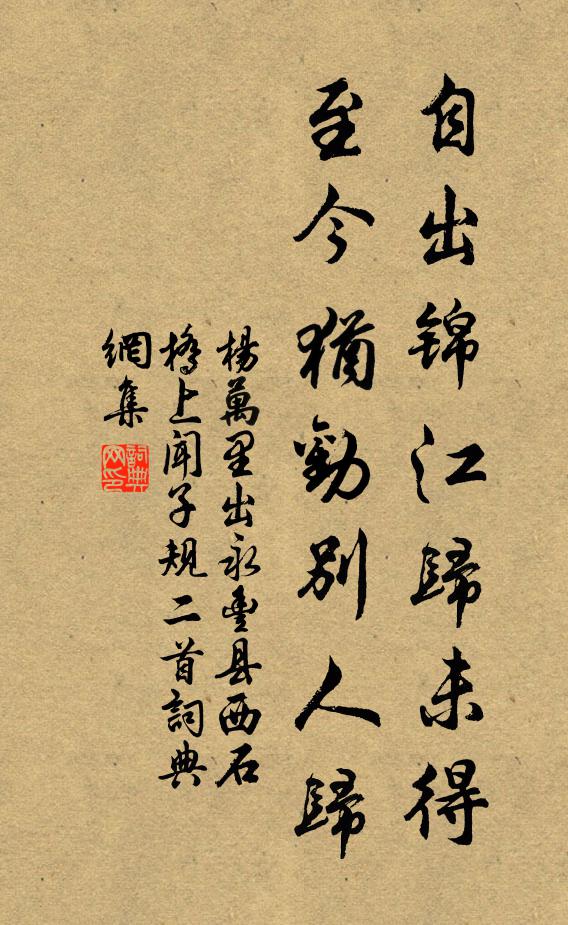 自出锦江歸未得
至今猶勸別人歸
楊萬里出永豊县西石
橋上闻子規二首詞典
網集
詞典网印